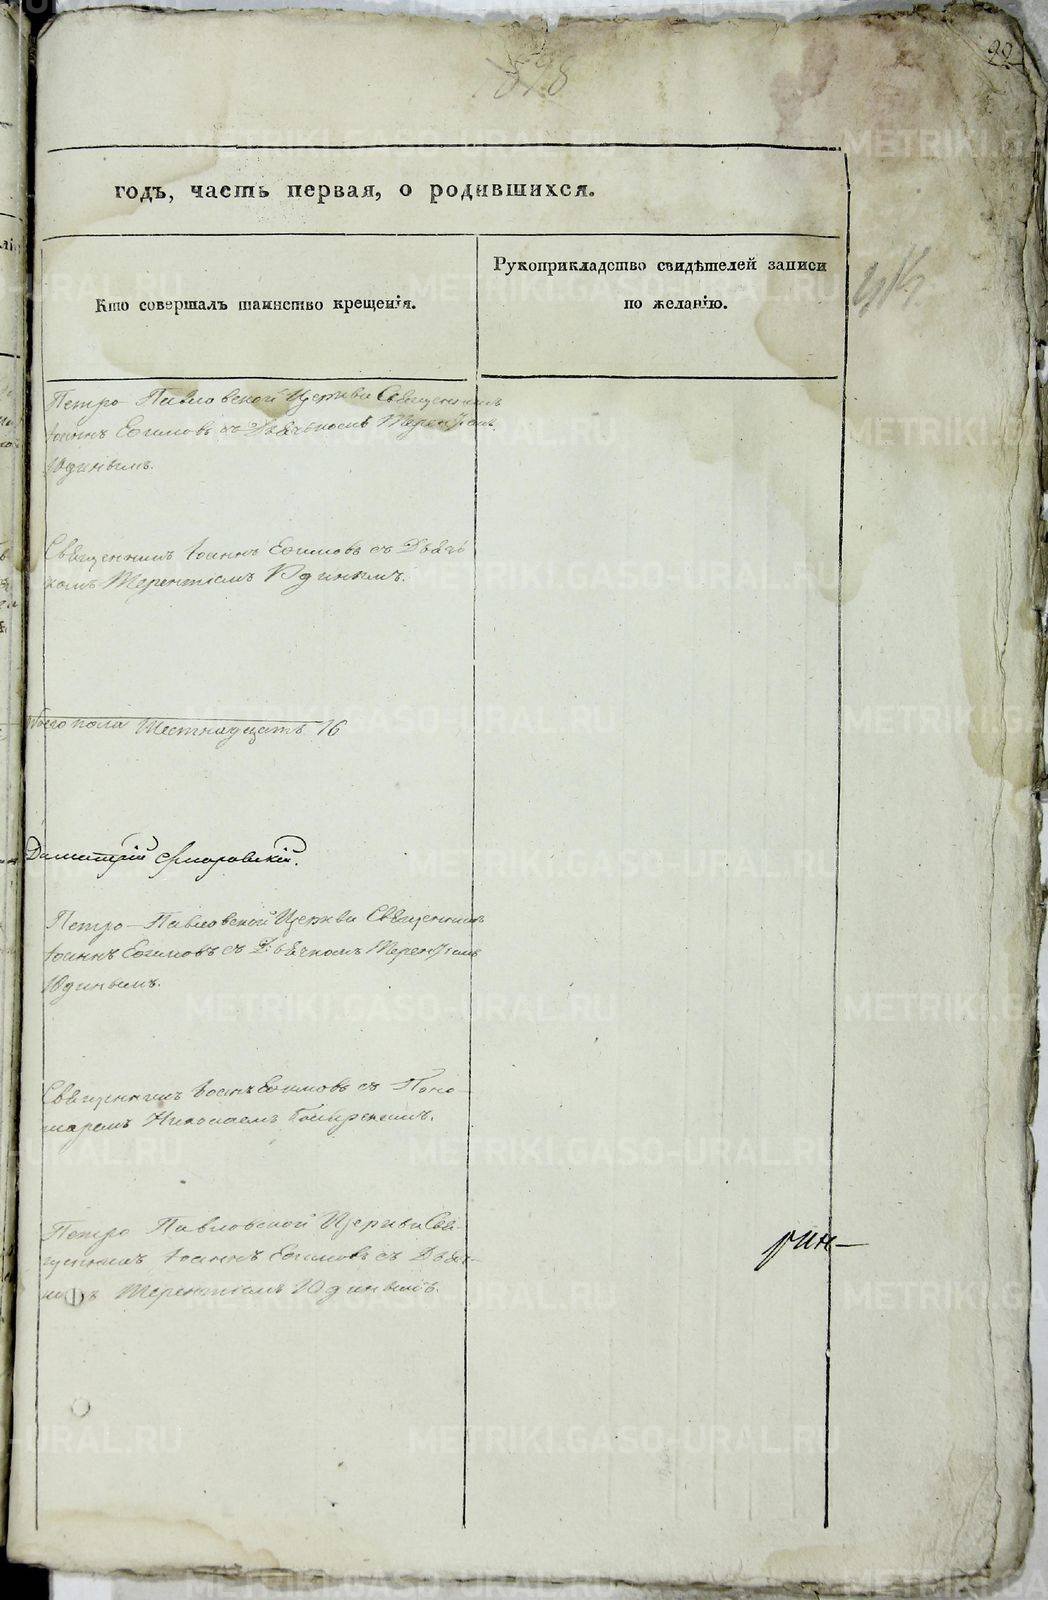 898
годъ, часть первая, о родившихся.
Кто совершалъ таинство крещенія.
Рукоприкладство свидѣтелей записи
по желанію.
Петро-Павловской Церкви Священникъ
Іоаннъ Ефимовъ съ Дьячькомъ Терентіемъ
Юдинымъ.
Священникъ Іоаннъ Ефимовъ съ Дьячь
комъ Терентіемъ Юдинымъ.
пола Шестнадцать 16
Димитрій
Петро-Павловской Церкви Священникъ
Іоаннъ Ефимовъ съ Дьячкомъ Терентіемъ
Юдинымъ.
Священникъ Іоаннъ Ефимовъ съ Поно-
маремъ Николаемъ
Петро Павловской Церкви Свя-
щенникъ Іоаннъ Ефимовъ съ Дьяч-
Терентіемъ Юдинымъ.
METRIKI.GASO-URAL.RU